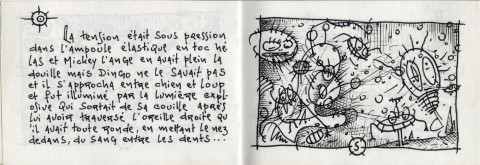 La tension était sous pression
dans l'ampoule élastique en toc hé
las et Mickey l'ange en avait plein la
douille mais Dingo ne le savait pas
et il s'approcha entre chien et loup
et fut illuminé par la lumière expl-
osive qui sortait de sa couille après
lui avoir traversé l'oreille droite qu
'il avait toute ronde, en mettant le nez
dedans, du sang entre les dents...
5